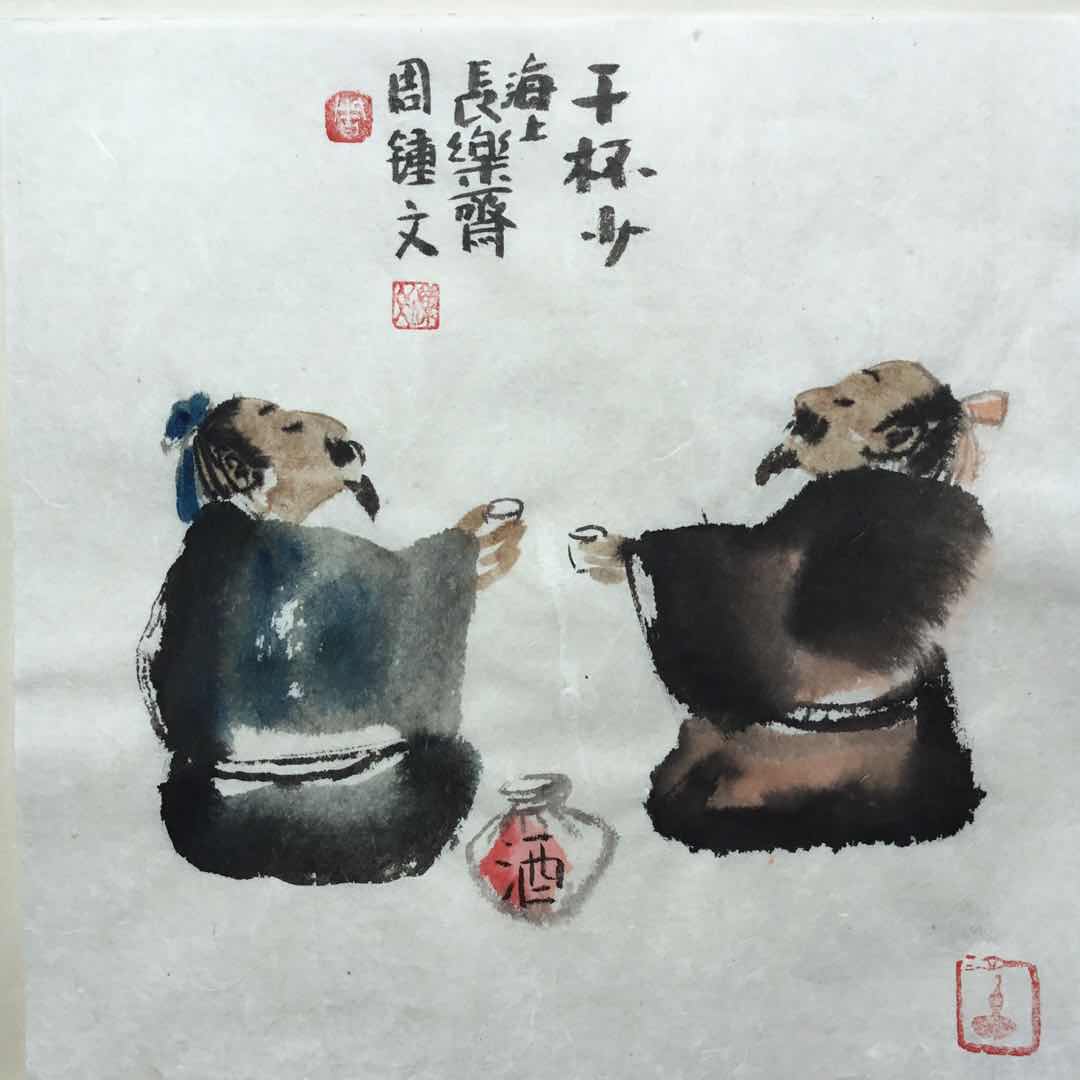 千杯少
海上
長樂齋
周鍾文
酒